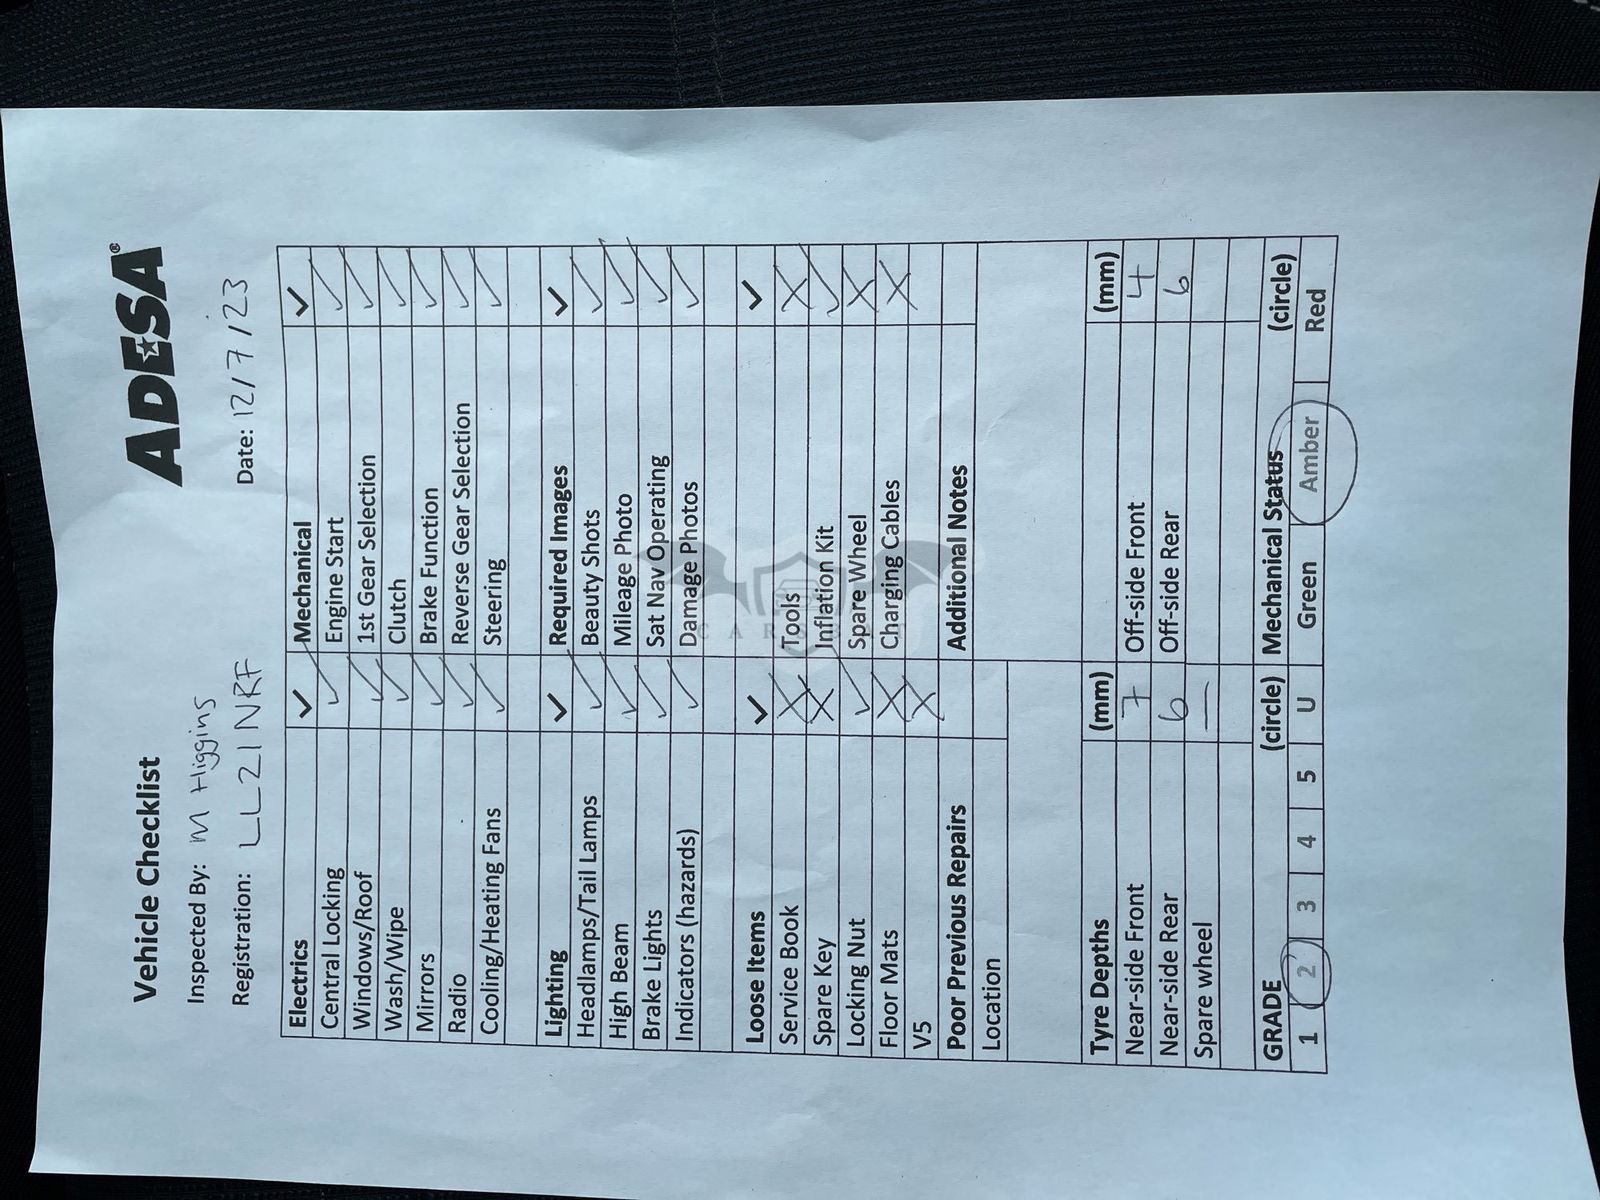 ADESA®
Vehicle Checklist
Inspected By: M Higgins
Registration: LL21NRF Date: 12/7/23
Electrics ✓ Mechanical ✓
Central Locking ✓ Engine Start ✓
Windows/Roof ✓ 1st Gear Selection ✓
Wash/Wipe ✓ Clutch ✓
Mirrors ✓ Brake Function ✓
Radio ✓ Reverse Gear Selection ✓
Cooling/Heating Fans ✓ Steering ✓
Lighting ✓ Required Images ✓
Headlamps/Tail Lamps ✓ Beauty Shots ✓
High Beam ✓ Mileage Photo ✓
Brake Lights ✓ Sat Nav Operating ✓
Indicators (hazards) ✓ Damage Photos ✓
CARSBAT
Loose Items ✓ ✓
Service Book X Tools X
Spare Key X Inflation Kit ✓
Locking Nut ✓ Spare Wheel X
Floor Mats X Charging Cables X
V5 X
Poor Previous Repairs Additional Notes
Location
Tyre Depths (mm) (mm)
Near-side Front 7 Off-side Front 4
Near-side Rear 6 Off-side Rear 6
Spare wheel —
GRADE (circle) Mechanical Status (circle)
1 2 3 4 5 U Green Amber Red